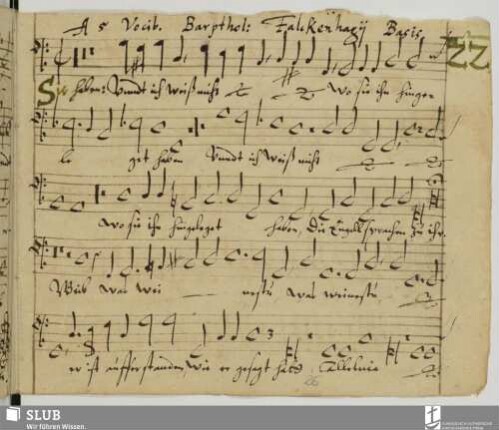 A 5 Vocib. Barpthol: Falckenhagij Basis.
22
Sie haben: Vnndt ich weiß nicht wo sie ihn hingen
le get haben Vnndt ich weiß nicht
wo sie ihn hingeleget haben, Die Engell sprachen zu ihr,
Weib was wei nestu was weinestu
er ist aufferstanden, Wie er gesaget hatt, Alleluia
SLUB
Wir führen Wissen.